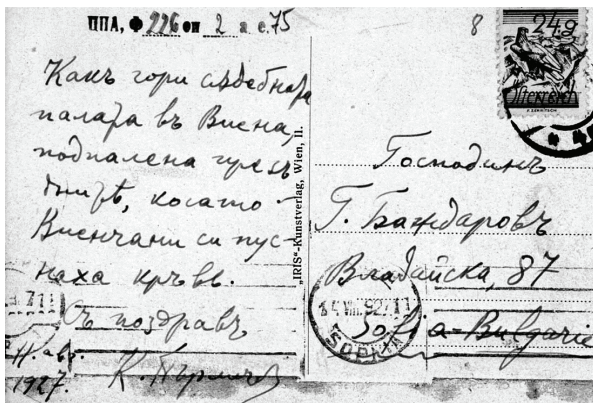 ППА, Ф 226 оп 2 а е. 75
8
24g
Österreich
Какъ гори съдебната
палата въ Виена,
подпалена презъ
когато
Виенчани си пус-
наха кръвь.
Съ поздравъ
авг.
1927.
К. Пърличевъ
"IRIS"-Kunstverlag, Wien, II.
Господинъ
Г. Баждаровъ
Владайска, 87
Sofia-Bulgarie
SOFIA